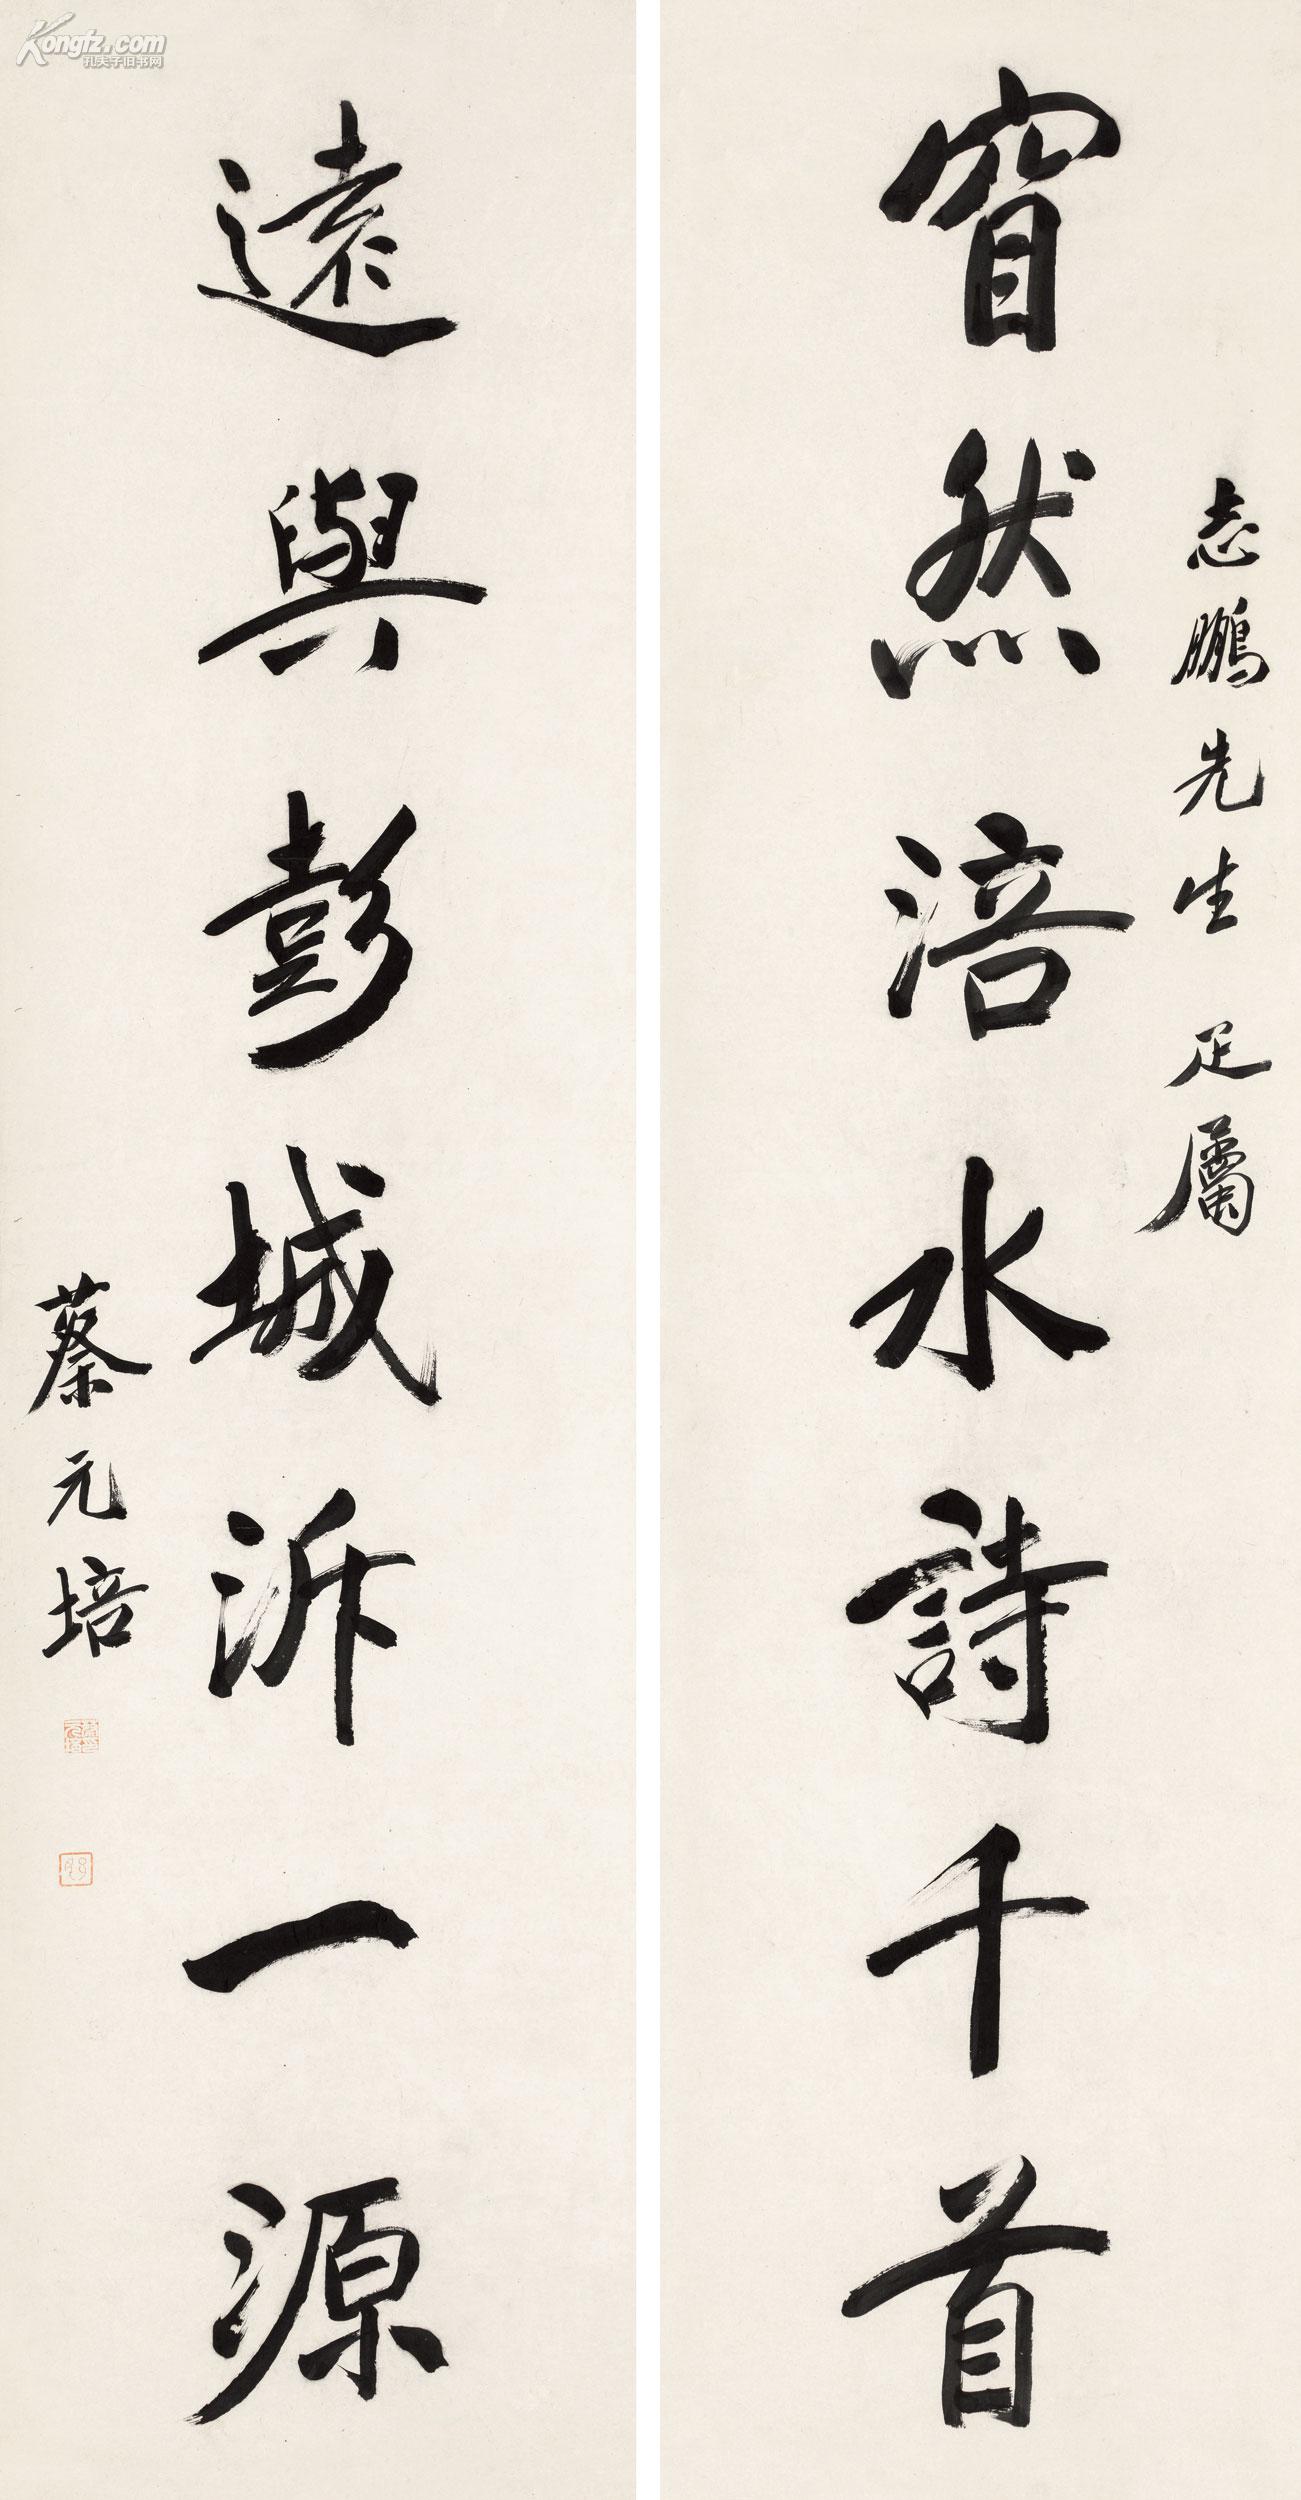 志鵬先生 疋屬
窅然涪水詩千首
遠與彭城泝一源
蔡元培
Kongfz.com
孔夫子旧书网